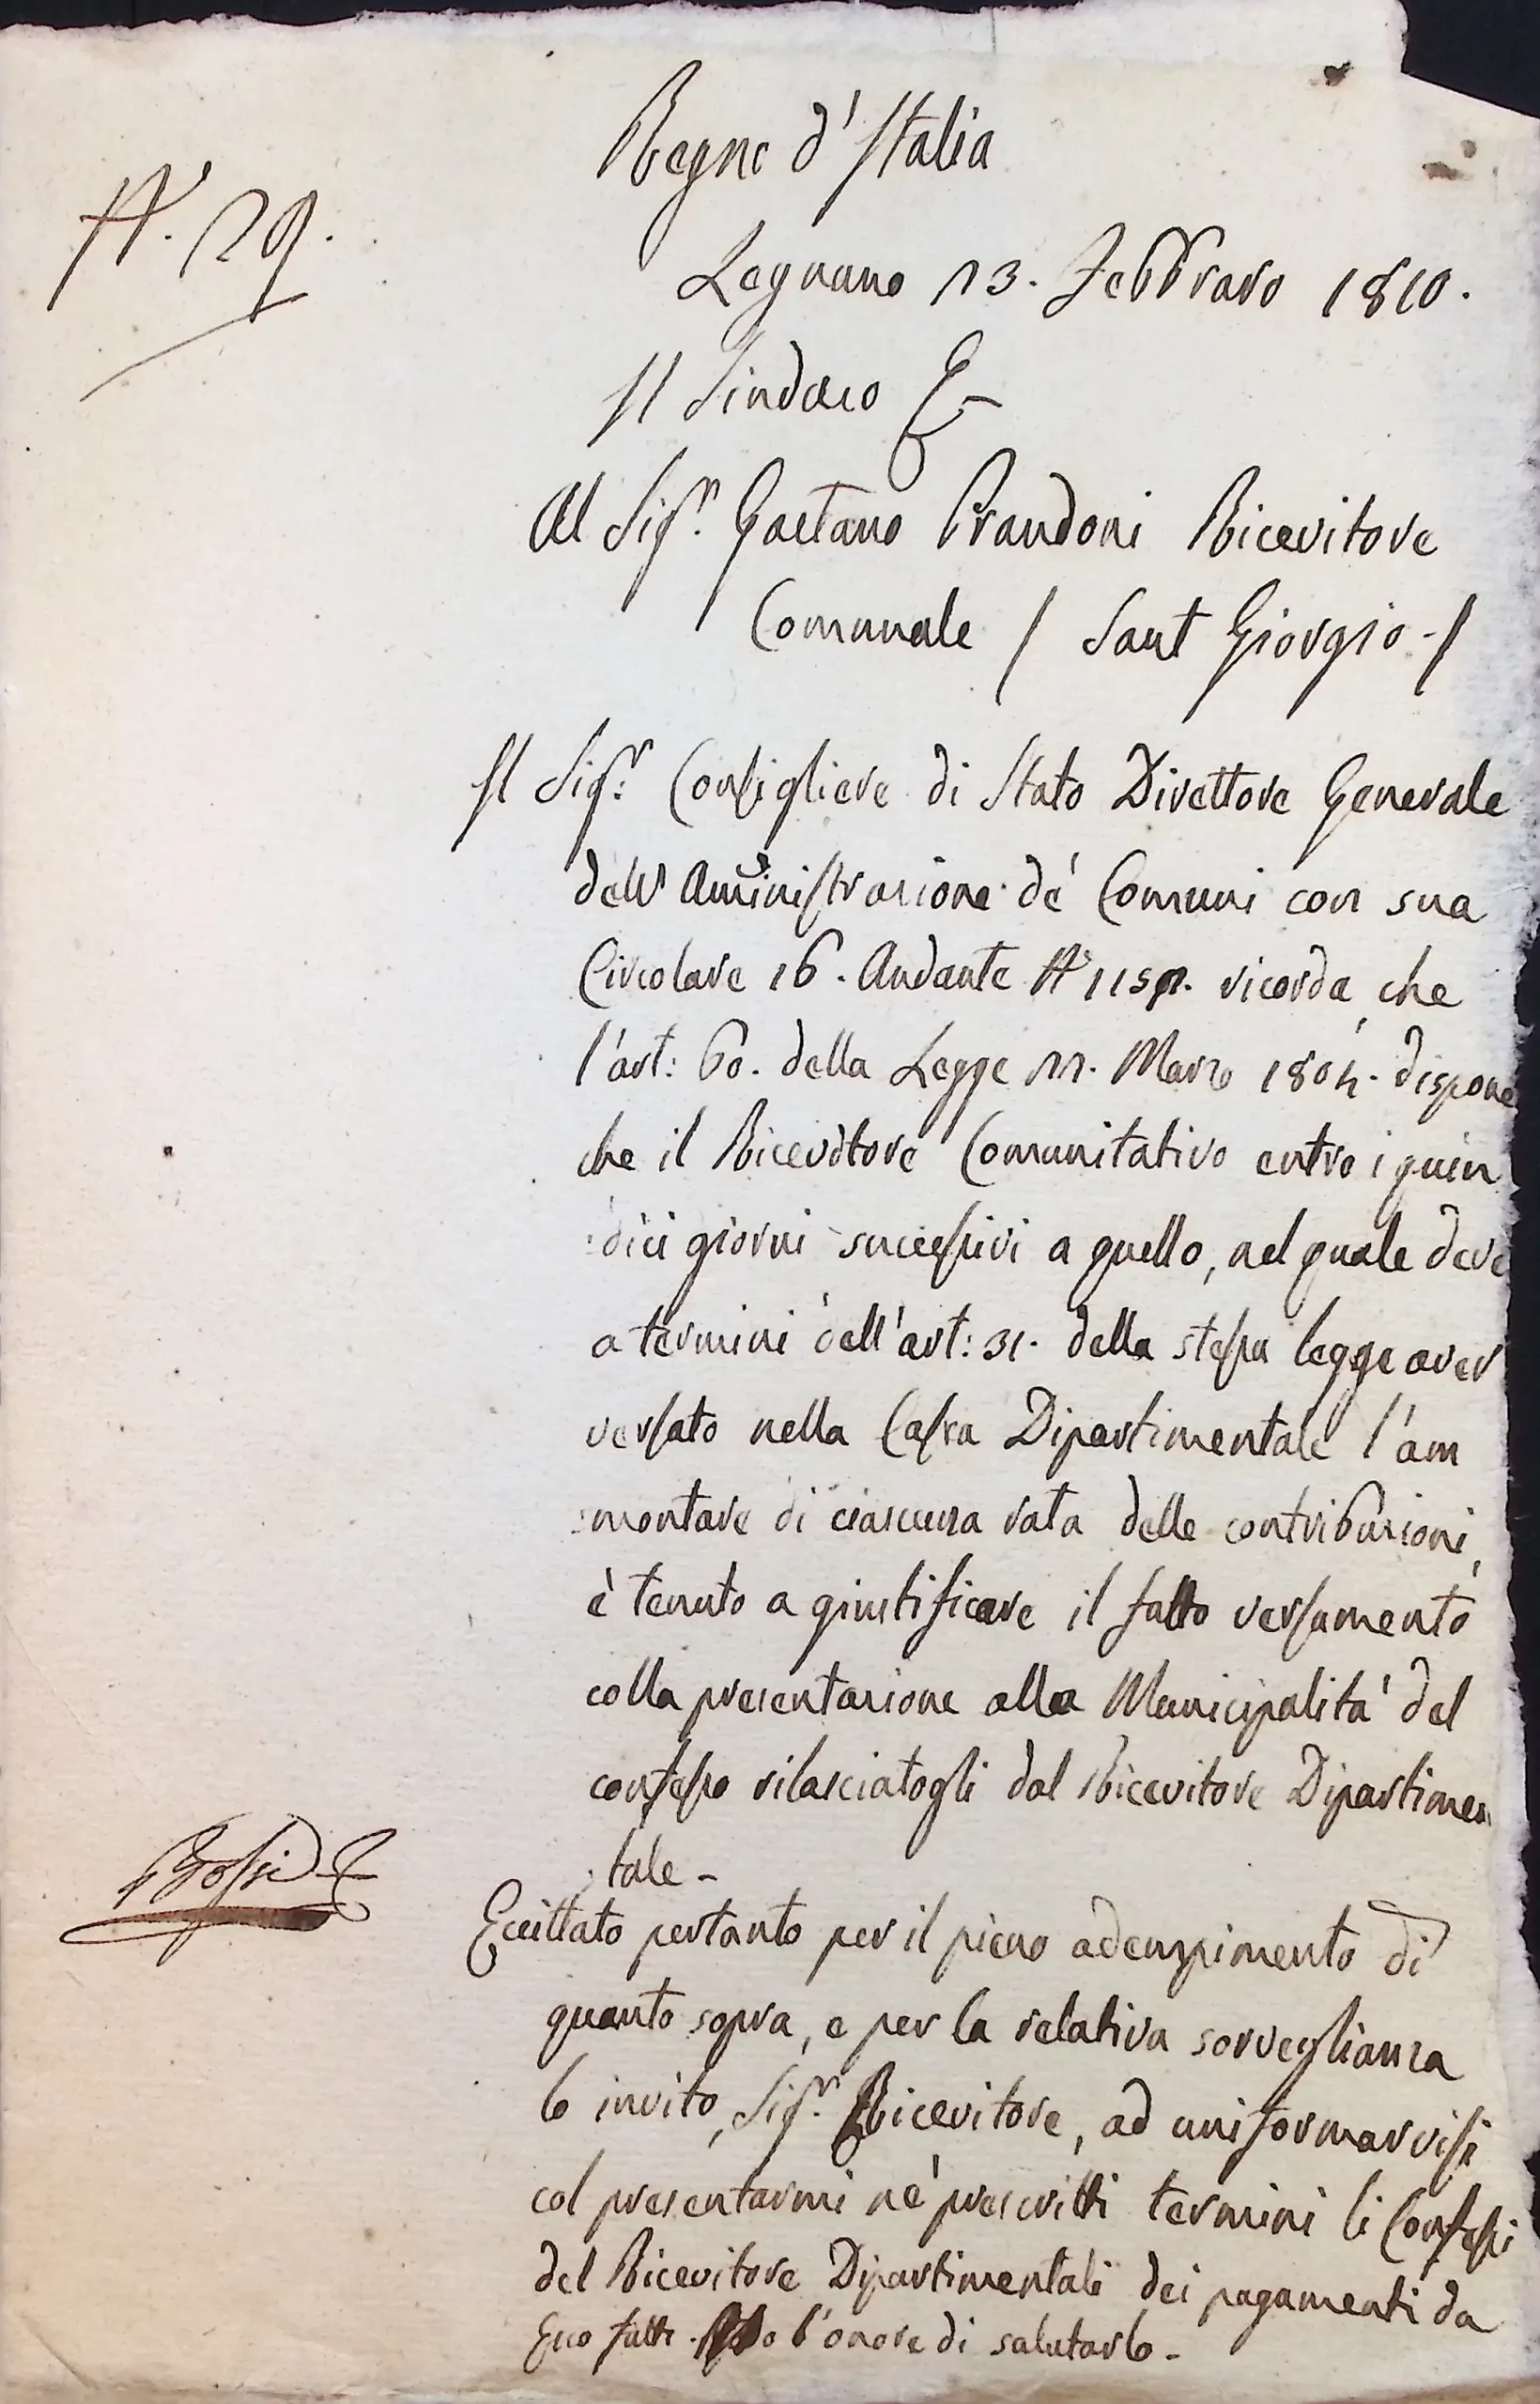 Regno d'Italia
N.° 29.
Legnano 23. Febbraro 1810.
Il Sindaco
Al Sig.r Gaetano Prandoni Ricevitore
Comunale / Sant Giorgio /
Il Sig.r Consigliere di Stato Direttore Generale
dell' Amministrazione de' Comuni con sua
Circolare 16. Andante N.° ricorda, che
l'art: 60. della Legge 22. Marzo 1804. dispone
che il Ricevitore Comunitativo entro i quin
dici giorni successivi a quello, nel quale deve
a termini dell'art: 31. della stessa legge aver
versato nella Cassa Dipartimentale l'am
montare di ciascuna rata delle contribuzioni,
è tenuto a giustificare il fatto versamento
colla presentazione alla Municipalità del
confesso rilasciatogli dal Ricevitore Dipartimen
tale -
Bossi
Eccittato pertanto per il pieno adempimento di
quanto sopra, e per la relativa sorveglianza
lo invito, Sig.r Ricevitore, ad uniformarvisi
col presentarmi ne' prescritti termini li Confessi
del Ricevitore Dipartimentale dei pagamenti da
Esso fatti. Ho l'onore di salutarlo -